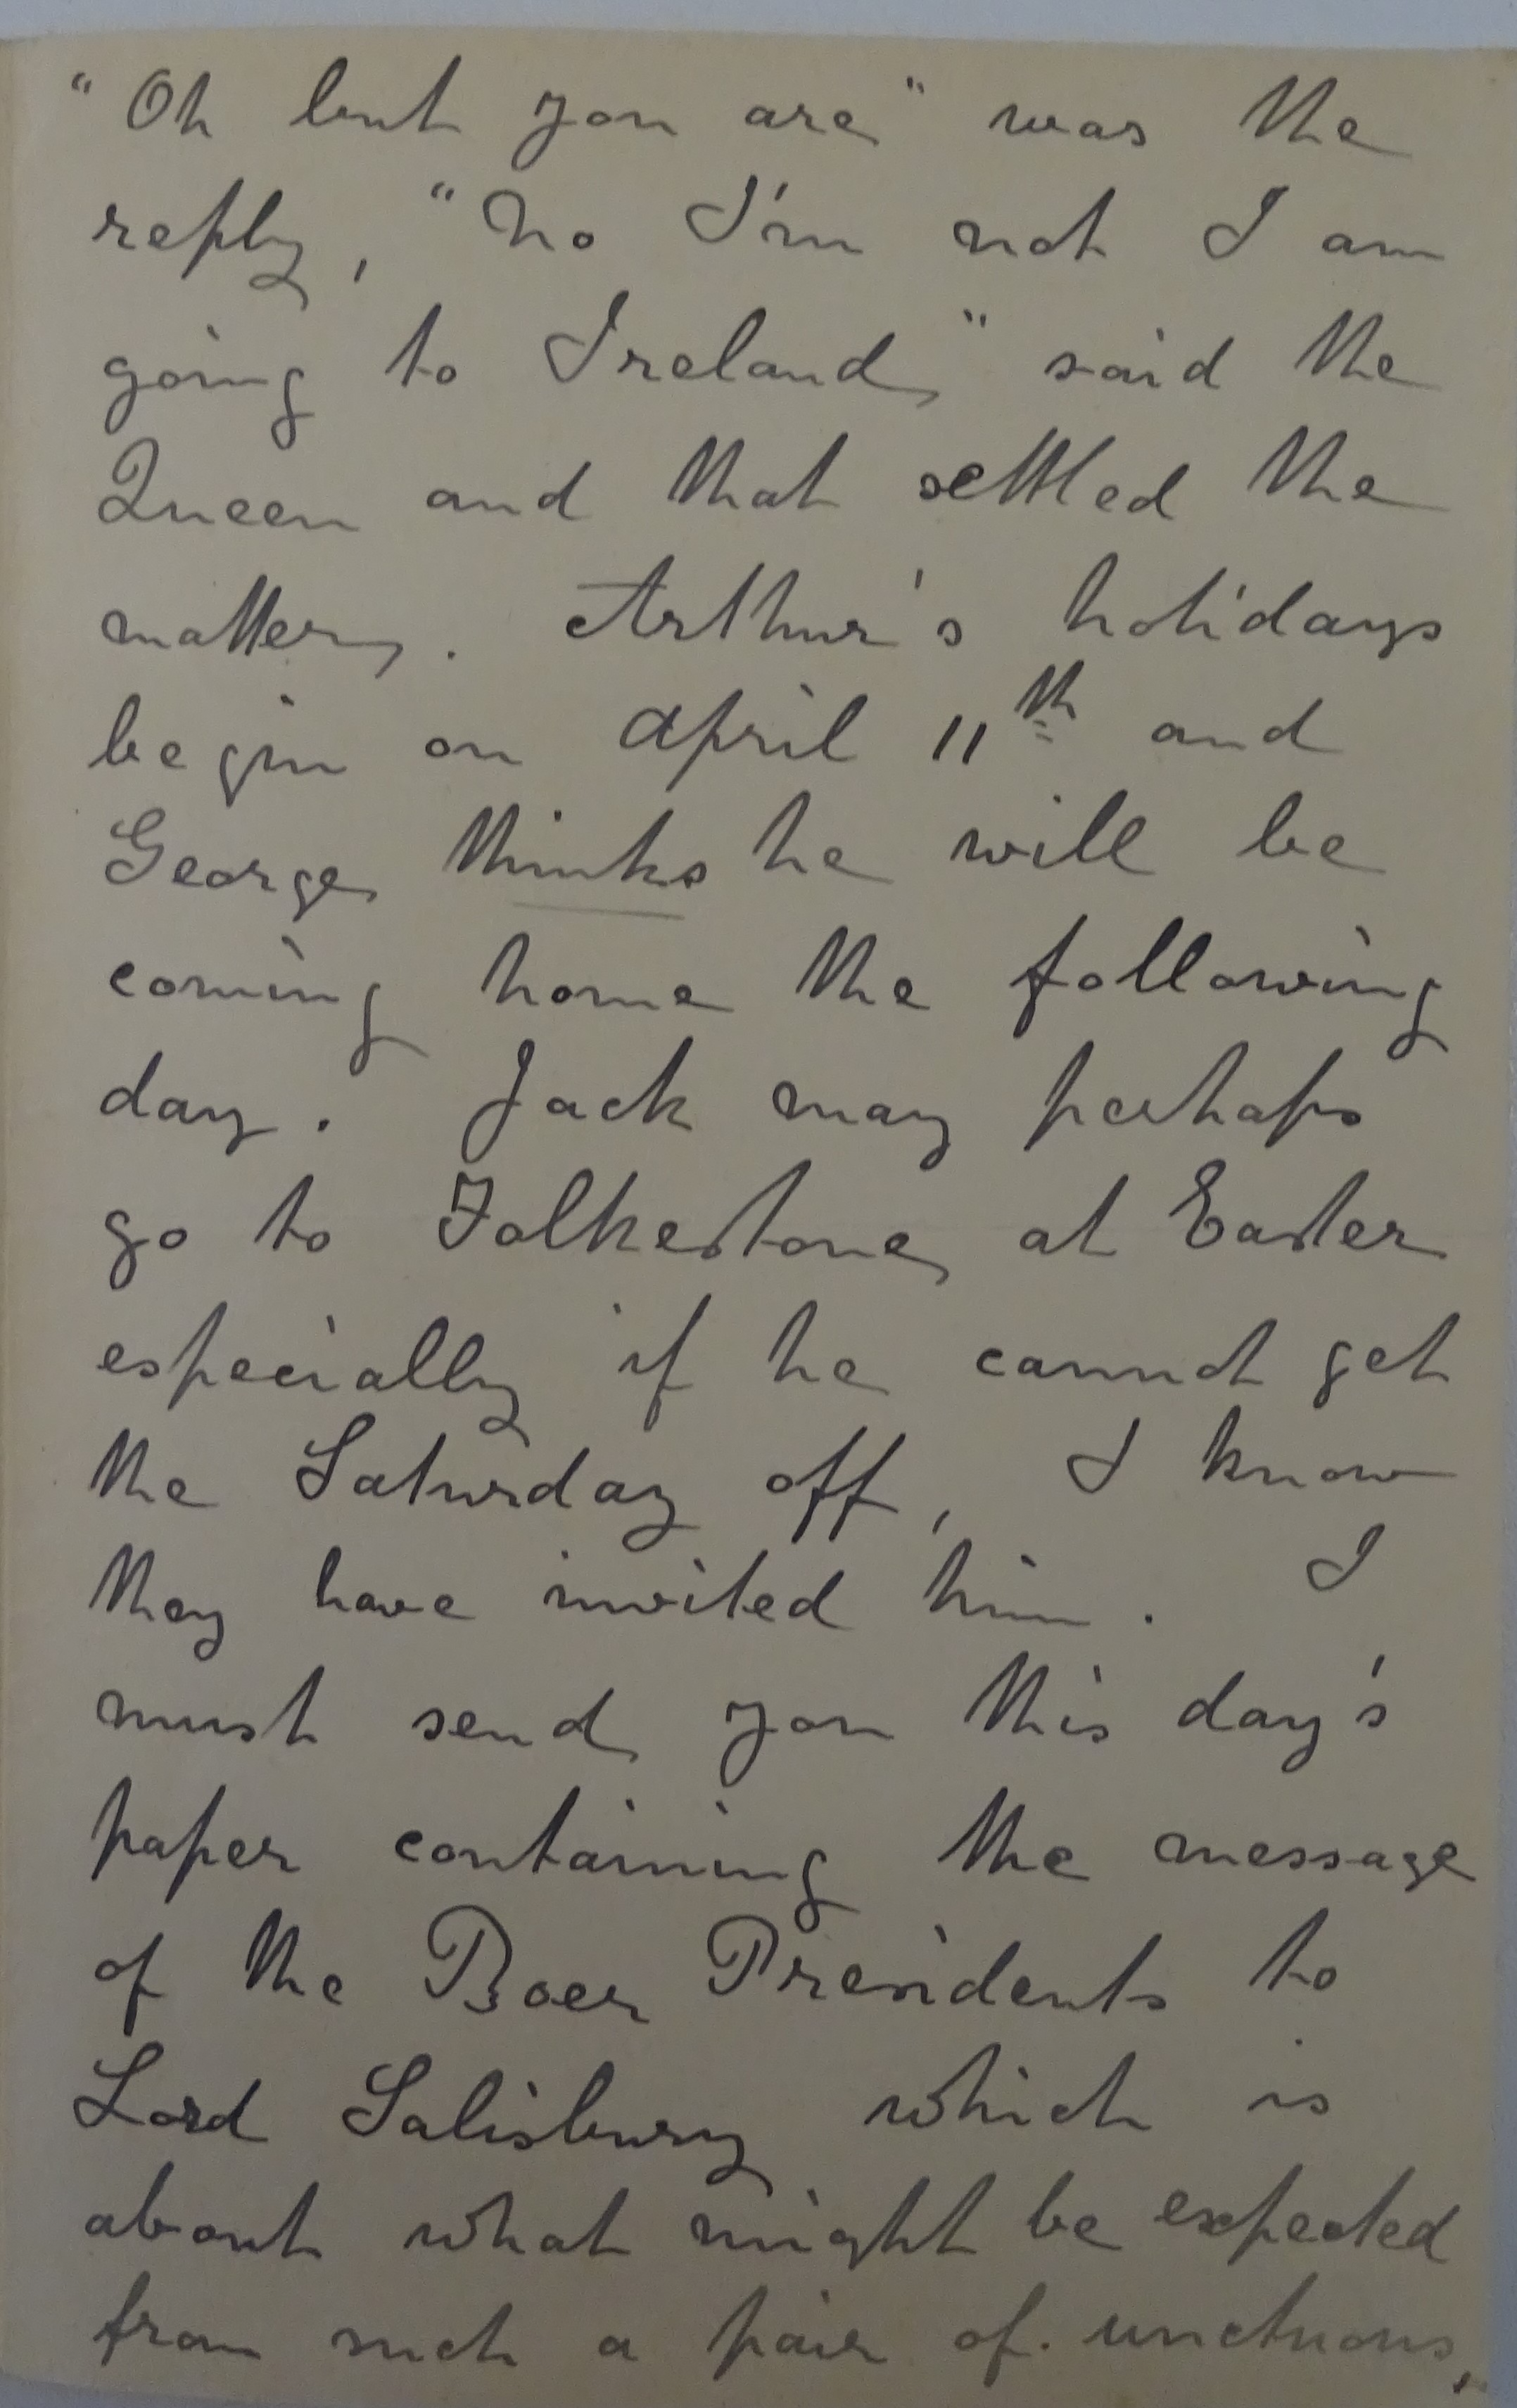 "Oh but you are" was the
reply, "No I'm not I am
going to Ireland" said the
Queen and that settled the
matter. Arthur's holidays
begin on April 11th and
George thinks he will be
coming home the following
day. Jack may perhaps
go to Folkestone at Easter
especially if he cannot get
the Saturday off, I know
they have invited him. I
must send you this day's
paper containing the message
of the Boer Presidents to
Lord Salisbury which is
about what might be expected
from such a pair of unctuous,